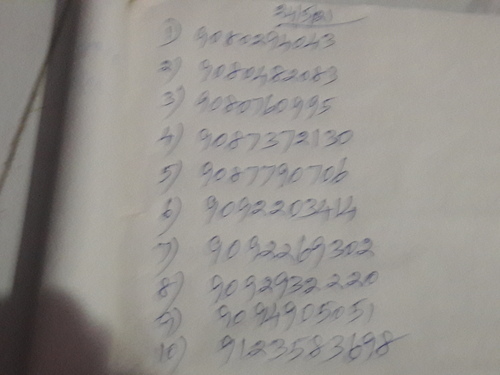 1) 9080294043
2) 9080482083
3) 9080760995
4) 9087372130
5) 9087790706
6) 9092203414
7) 9092269302
8) 9092932220
9) 9094905051
10) 9123583698